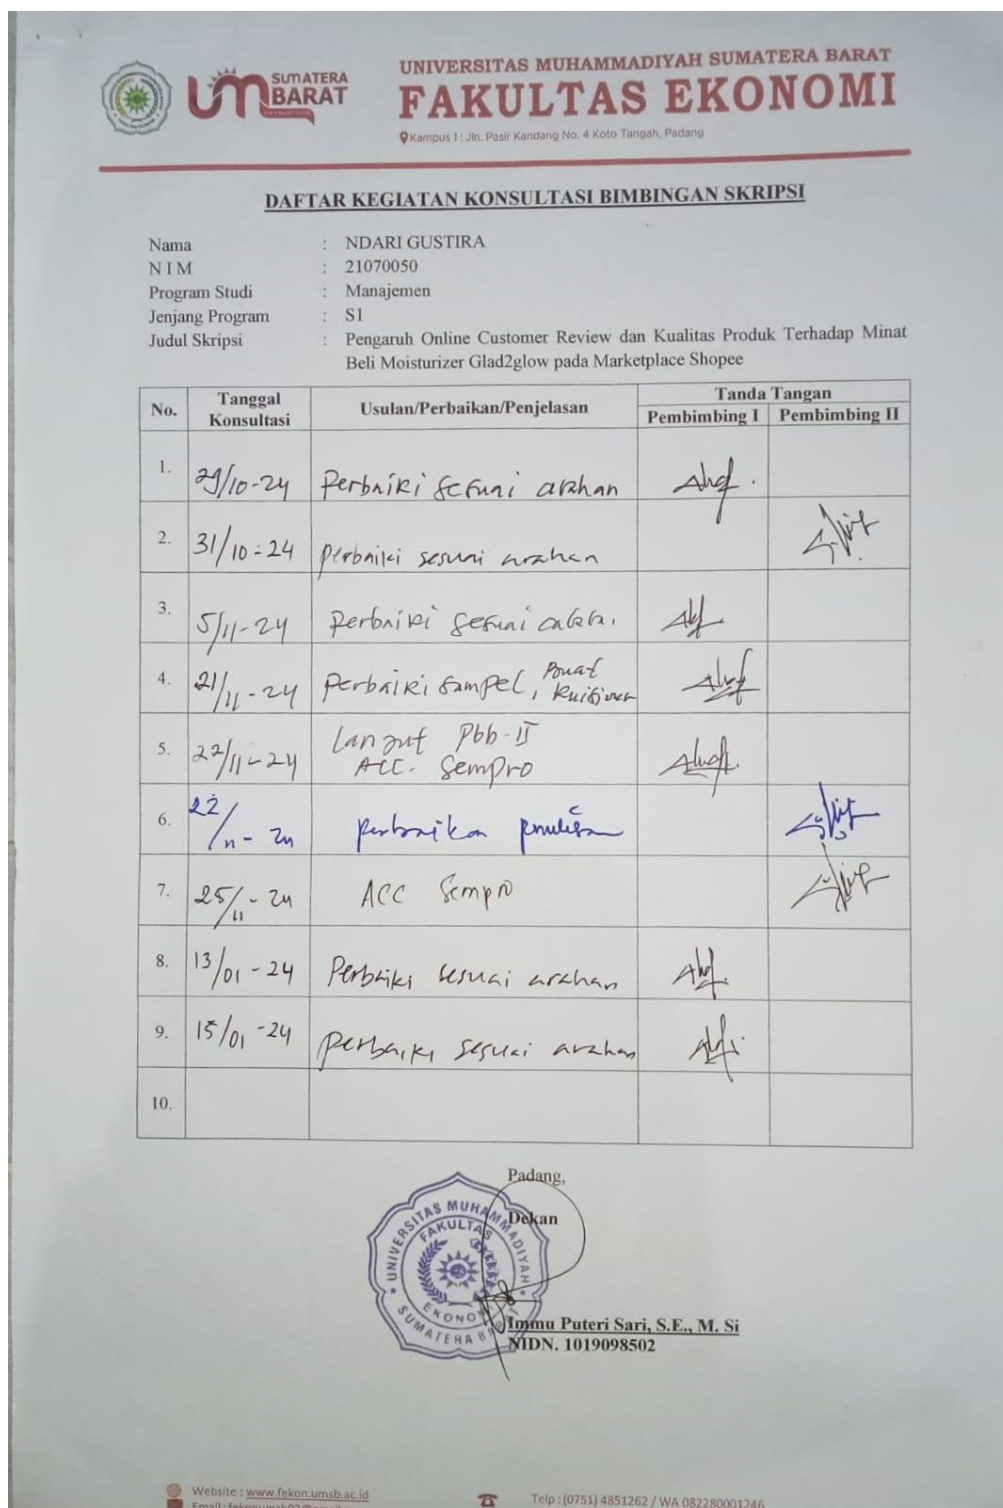 SUMATERA
UM BARAT
UNIVERSITAS MUHAMMADIYAH SUMATERA BARAT
FAKULTAS EKONOMI
Kampus 1 : Jln. Pasir Kandang No. 4 Koto Tangah, Padang
DAFTAR KEGIATAN KONSULTASI BIMBINGAN SKRIPSI
Nama : NDARI GUSTIRA
N I M : 21070050
Program Studi : Manajemen
Jenjang Program : S1
Judul Skripsi : Pengaruh Online Customer Review dan Kualitas Produk Terhadap Minat
Beli Moisturizer Glad2glow pada Marketplace Shopee
No. Tanggal Konsultasi Usulan/Perbaikan/Penjelasan Tanda Tangan
Pembimbing I Pembimbing II
1. 29/10-24 Perbaiki sesuai arahan
2. 31/10-24 perbaiki sesuai arahan
3. 5/11-24 Perbaiki sesuai
4. 21/11-24 Perbaiki sampel, Buat
5. 22/11-24 Lanjut Pbb-II
ACC. Sempro
6. 22/11-24 perbaikan penulisan
7. 25/11-24 ACC Sempro
8. 13/01-24 Perbaiki sesuai arahan
9. 15/01-24 perbaiki sesuai arahan
10.
Padang,
Dekan
UNIVERSITAS MUHAMMADIYAH
FAKULTAS
EKONOMI
SUMATERA BARAT
Immu Puteri Sari, S.E., M. Si
NIDN. 1019098502
Website : www.fekon.umsb.ac.id
Telp : (0751) 4851262 / WA 082280001246